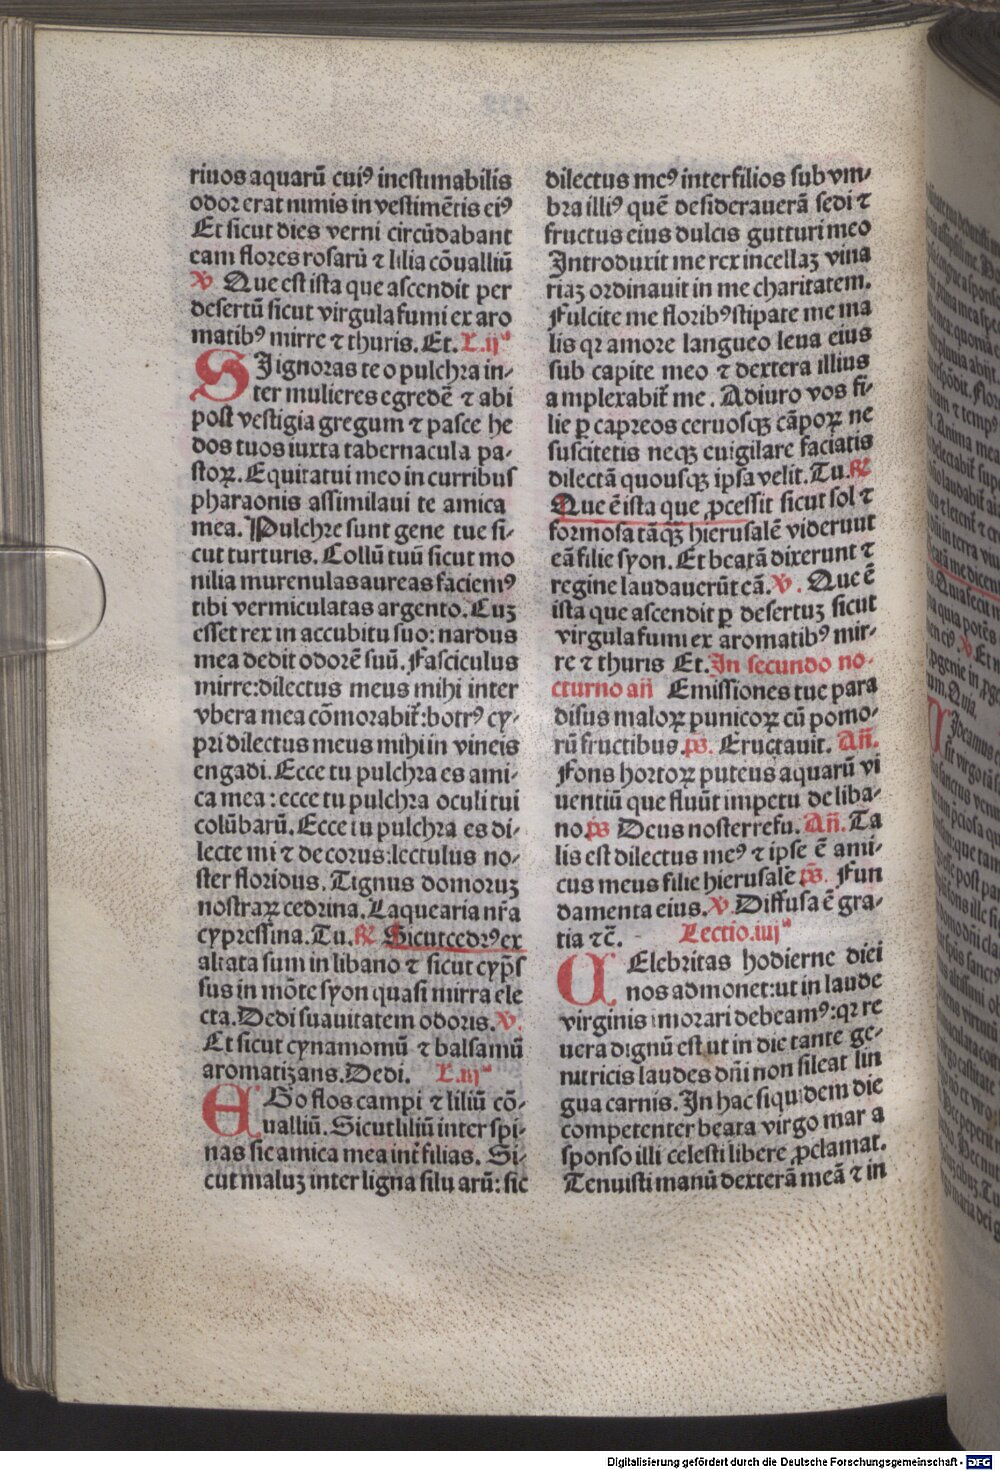 riuos aquarū cuiꝰ inestimabilis
odoꝛ erat nimis in vestimētis eiꝰ
Et sicut dies verni circūdabant
eam flores rosarū ⁊ lilia cōualliū
℣ Que est ista que ascendit per
desertū sicut virgula fumi ex aro
matibꝰ mirre ⁊ thuris. Et. L.ijᵃ
SI ignoras te o pulchꝛa in-
ter mulieres egredē ⁊ abi
post vestigia gregum ⁊ pasce he
dos tuos iuxta tabernacula pa-
stoꝝ. Equitatui meo in curribus
pharaonis assimilaui te amica
mea. Pulchꝛe sunt gene tue si-
cut turturis. Collū tuū sicut mo
nilia murenulas aureas faciemꝰ
tibi vermiculatas argento. Cuꝫ
esset rex in accubitu suo: nardus
mea dedit odoꝛē suū. Fasciculus
mirre: dilectus meus mihi inter
vbera mea cōmoꝛabit̄: botrꝰ cy-
pri dilectus meus mihi in vineis
engadi. Ecce tu pulchꝛa es ami-
ca mea: ecce tu pulchꝛa oculi tui
colūbarū. Ecce tu pulchꝛa es di-
lecte mi ⁊ decoꝛus: lectulus no-
ster floridus. Tignus domoꝛuꝫ
nostraꝝ cedrina. Laquearia nr̄a
cypressina. Tu. ℟ Sicut cedrꝰ ex
altata sum in libano ⁊ sicut cyp̄s
sus in mōte syon quasi mirra ele
cta. Dedi suauitatem odoꝛis. ℣.
Et sicut cynamomū ⁊ balsamū
aromatiꝫans. Dedi. L.iijᵃ
EGo flos campi ⁊ liliū cō-
ualliū. Sicut liliū inter spi-
nas sic amica mea int̄ filias. Si-
cut maluꝫ inter ligna siluarū: sic
dilectus meꝰ inter filios sub vm-
bra illiꝰ quē desiderauerā sedi ⁊
fructus eius dulcis gutturi meo
Introduxit me rex in cellaꝫ vina
riaꝫ oꝛdinauit in me charitatem.
Fulcite me floribꝰ stipate me ma
lis qꝛ amoꝛe langueo leua eius
sub capite meo ⁊ dextera illius
amplexabit̄ me. Adiuro vos fi-
lie ꝑ capꝛeos ceruosqꝫ cāpoꝝ ne
suscitetis neqꝫ euigilare faciatis
dilectā quousqꝫ ipsa velit. Tu. ℟
Que ē ista que ꝓcessit sicut sol ⁊
foꝛmosa tāqꝫ hierusalē viderunt
eā filie syon. Et beatā dixerunt ⁊
regine laudauerūt eā. ℣. Que ē
ista que ascendit ꝑ desertuꝫ sicut
virgula fumi ex aromatibꝰ mir-
re ⁊ thuris Et. In secundo no-
cturno an̄ Emissiones tue para
disus maloꝝ punicoꝝ cū pomo-
rū fructibus. ps̄. Eructauit. An̄.
Fons hoꝛtoꝝ puteus aquarū vi
uentiū que fluūt impetu de liba-
no. ps̄ Deus noster refu. An̄. Ta
lis est dilectus meꝰ ⁊ ipse ē ami-
cus meus filie hierusalē ps̄. Fun
damenta eius. ℣. Diffusa ē gra-
tia ⁊c̄. Lectio.iiijᵃ
CElebꝛitas hodierne diei
nos admonet: ut in laude
virginis imoꝛari debeamꝰ: qꝛ re
uera dignū est ut in die tante ge-
nitricis laudes dn̄i non sileat lin
gua carnis. In hac siquidem die
competenter beata virgo maria
sponso illi celesti libere ꝓclamat.
Tenuisti manū dexterā meā ⁊ in
Digitalisierung gefördert durch die Deutsche Forschungsgemeinschaft - DFG